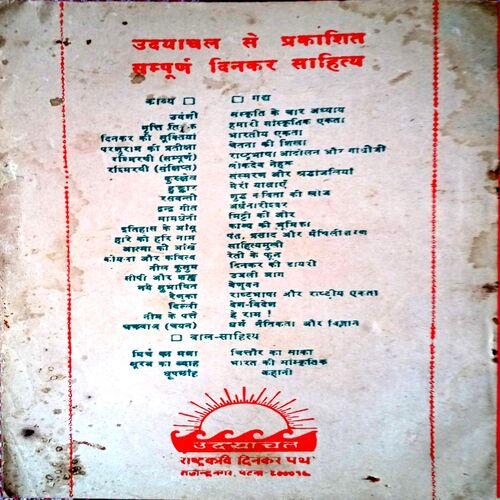 उदयाचल से प्रकाशित
सम्पूर्ण दिनकर साहित्य
काव्य
उर्वशी
दिनकर की सूक्तियां
परशुराम की प्रतीक्षा
रश्मिरथी (सम्पूर्ण)
रश्मिरथी (संक्षिप्त)
कुरुक्षेत्र
हुङ्कार
रसवन्ती
द्वन्द्व गीत
सामधेनी
इतिहास के आँसू
हारे को हरि नाम
आत्मा की आँखें
कोयला और कवित्व
नील कुसुम
सीपी और शङ्ख
नये सुभाषित
रेणुका
दिल्ली
नीम के पत्ते
चक्रवाल (चयन)
गद्य
संस्कृति के चार अध्याय
हमारी सांस्कृतिक एकता
भारतीय एकता
चेतना की शिखा
राष्ट्रभाषा आंदोलन और गांधीजी
लोकदेव नेहरू
संस्मरण और श्रद्धांजलियाँ
मेरी यात्राएँ
शुद्ध कविता की खोज
अर्धनारीश्वर
मिट्टी की ओर
काव्य की भूमिका
पंत, प्रसाद और मैथिलीशरण
साहित्यमुखी
रेती के फूल
दिनकर की डायरी
उजली आग
वेणुवन
राष्ट्रभाषा और राष्ट्रीय एकता
देश-विदेश
हे राम !
धर्म नैतिकता और विज्ञान
बाल-साहित्य
मिर्च का मजा
सूरज का ब्याह
धूपछाँह
चित्तौर का साका
भारत की सांस्कृतिक
कहानी
उदयाचल
राष्ट्रकवि दिनकर पथ
राजेन्द्रनगर, पटना-८०००१६